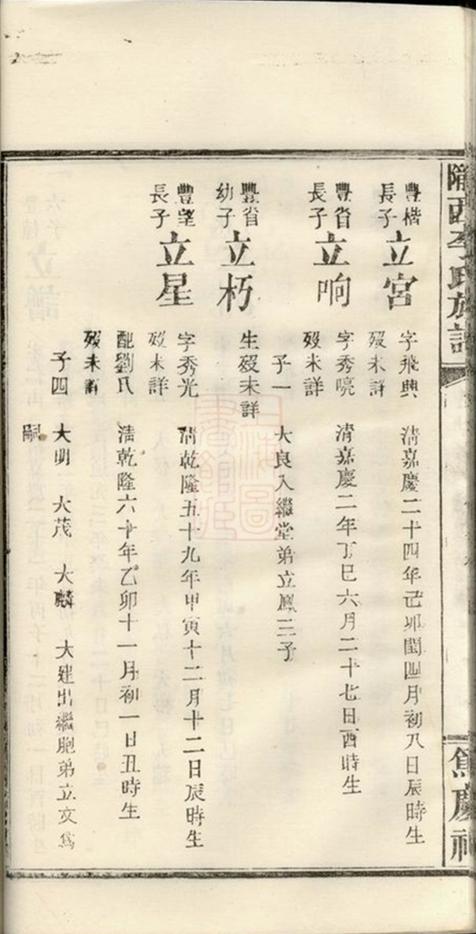 隴西李氏族譜
篤慶祠
豐楷長子 立宮 字飛興 清嘉慶二十四年己卯閏四月初八日辰時生
歿未詳
豐省長子 立响 字秀亮 清嘉慶二年丁巳六月二十七日酉時生
歿未詳
子一 大良入繼堂弟立鳳三子
豐省幼子 立朽 生歿未詳
豐望長子 立星 字秀光 清乾隆五十九年甲寅十二月十二日辰時生
歿未詳
配劉氏 清乾隆六十年乙卯十一月初一日丑時生
歿未詳
子四 大明 大茂 大麟 大建出繼胞弟立文爲
嗣